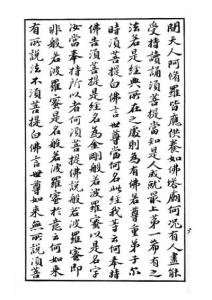 間天人阿脩羅皆應供養如佛塔廟何况有人盡能
受持讀誦須菩提當知是人成就最上第一希有之
法若是經典所在之處則為有佛若尊重弟子尔
時須菩提白佛言世尊當何名此經我等云何奉持
佛告須菩提是經名為金剛般若波羅蜜以是名字
汝當奉持所以者何須菩提佛說般若波羅蜜即
非般若波羅蜜是名般若波羅蜜於意云何如來
有所說法不須菩提白佛言世尊如來無所說須菩